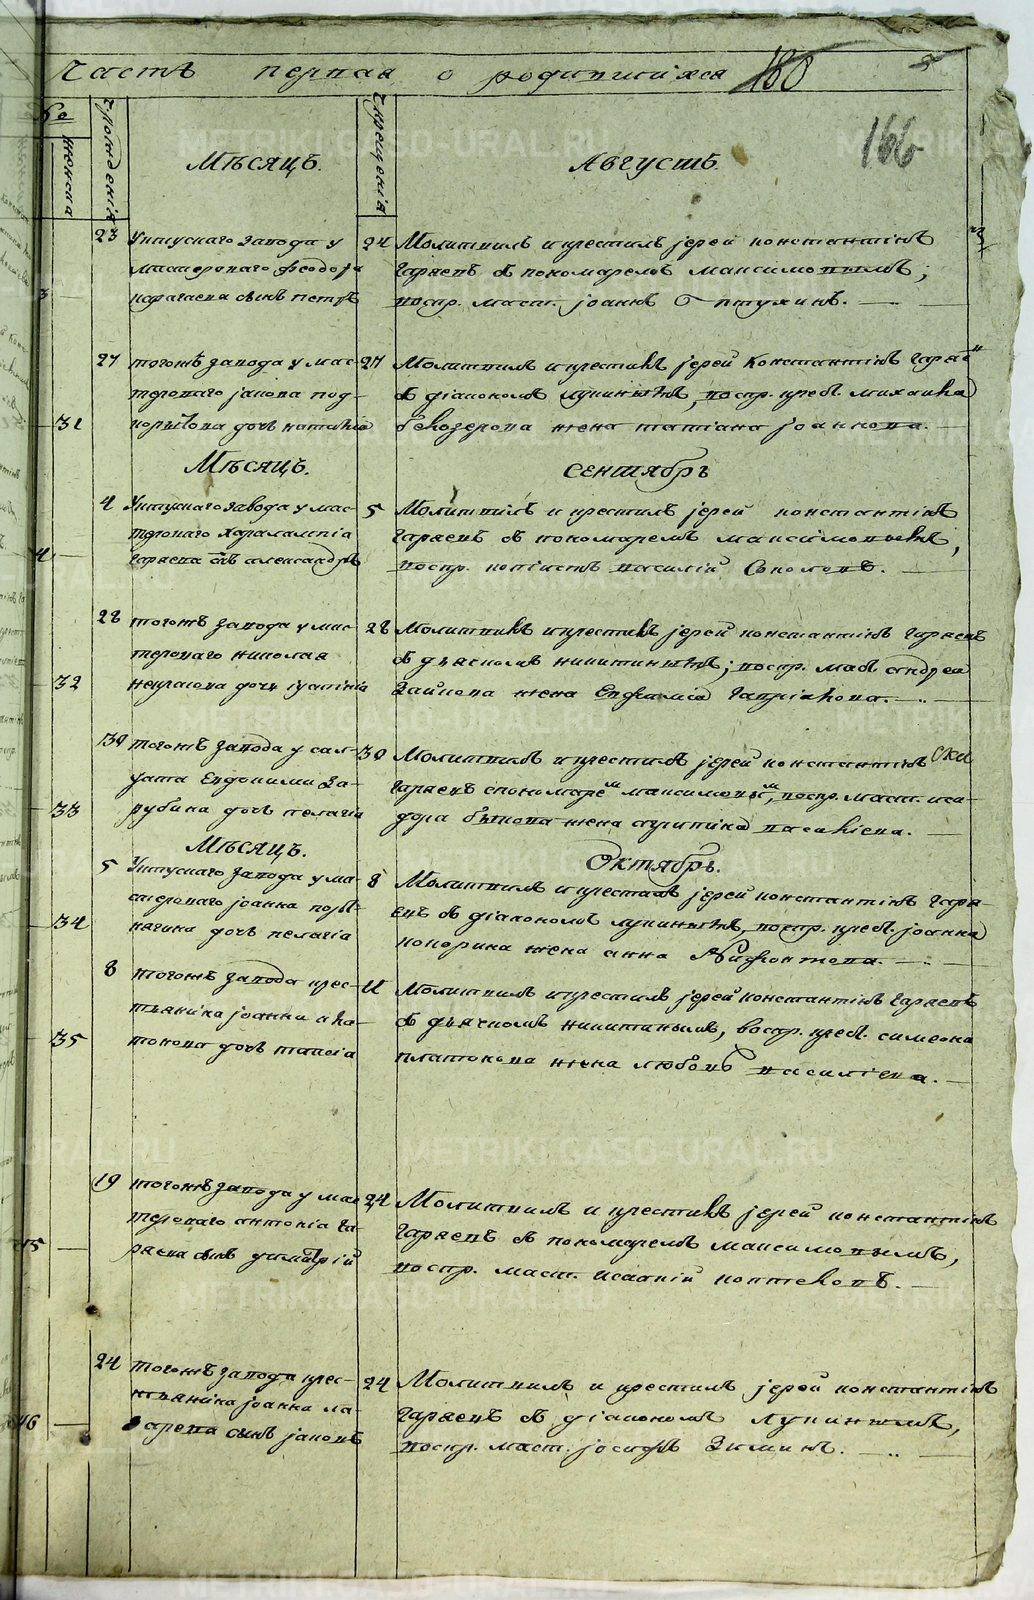 Часть первая о родившихся 180 5
166
№
женска
рожденія
Мѣсяцъ.
крещенія
Августъ.
23 Уктускаго завода у
мастероваго Феодора
Карагаева сынъ петръ
24 Молитвилъ и крестилъ іерей константинъ
Гаряевъ съ пономаремъ максимовымъ;
воспр. маст. іоаннъ Оптухинъ.
31
27 тогожъ завода у мас-
тероваго іакова под-
корытова дочь наталія
27 Молитвилъ и крестилъ іерей Константинъ Гаряевъ
съ діакономъ лукинымъ, воспр. креб. михаила
бѣлозерова жена татіана іоаннова.
Мѣсяцъ.
Сентябрь
4
4 Уктускаго завода у мас-
тероваго Харалампіа
Гаряева сынъ александръ
5 Молитвилъ и крестилъ іерей константинъ
Гаряевъ съ пономаремъ максимовымъ,
воспр. копіистъ василій Соколовъ.
32
28 тогожъ завода у мас-
тероваго николая
некрасова дочь іустинія
28 Молитвилъ и крестилъ іерей константинъ Гаряевъ
съ дьячкомъ никитинымъ; воспр. андрея
Зайкова жена Евфимія Гавріилова.
33
30 тогожъ завода у сол-
дата Евдокима За-
рубина дочь пелагіа
30 Молитвилъ и крестилъ іерей константинъ
Гаряевъ с пономаремъ максимовымъ, воспр. маст. иси-
дора быкова жена агрипина васильева.
Мѣсяцъ.
Октябрь.
34
5 Уктускаго завода у ма-
стероваго іоанна
дочь пелагіа
8 Молитвилъ и крестилъ іерей константинъ Гаря-
евъ съ діакономъ лукинымъ, воспр. креб. іоанна
кокорина жена анна
35
8 тогожъ завода крес-
тьянина іоанна пла-
тонова дочь таисіа
11 Молитвилъ и крестилъ іерей константинъ Гаряевъ
съ дьячкомъ никитинымъ, воспр. креб. симеона
платонова жена любовь василіева.
15
19 тогожъ завода у мас-
тероваго антоніа Га-
ряева сынъ димитрій
24 Молитвилъ и крестилъ іерей константинъ
Гаряевъ съ пономаремъ максимовымъ,
воспр. маст. исаакій коптеловъ.
16
24 тогожъ завода крес-
тьянина іоанна ла-
зарева сынъ іаковъ
24 Молитвилъ и крестилъ іерей константинъ
Гаряевъ съ діакономъ лукинымъ,
воспр. маст. іосифъ Зиминъ.
METRIKI.GASO-URAL.RU